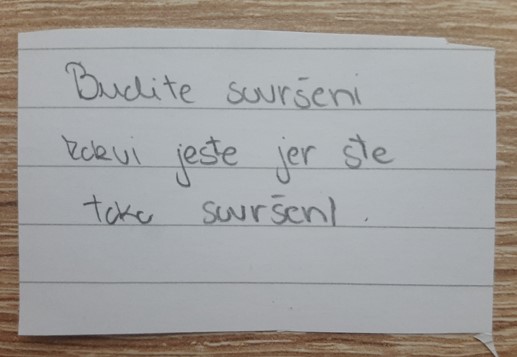 Budite savršeni
kakvi jeste jer ste
tako savršeni.